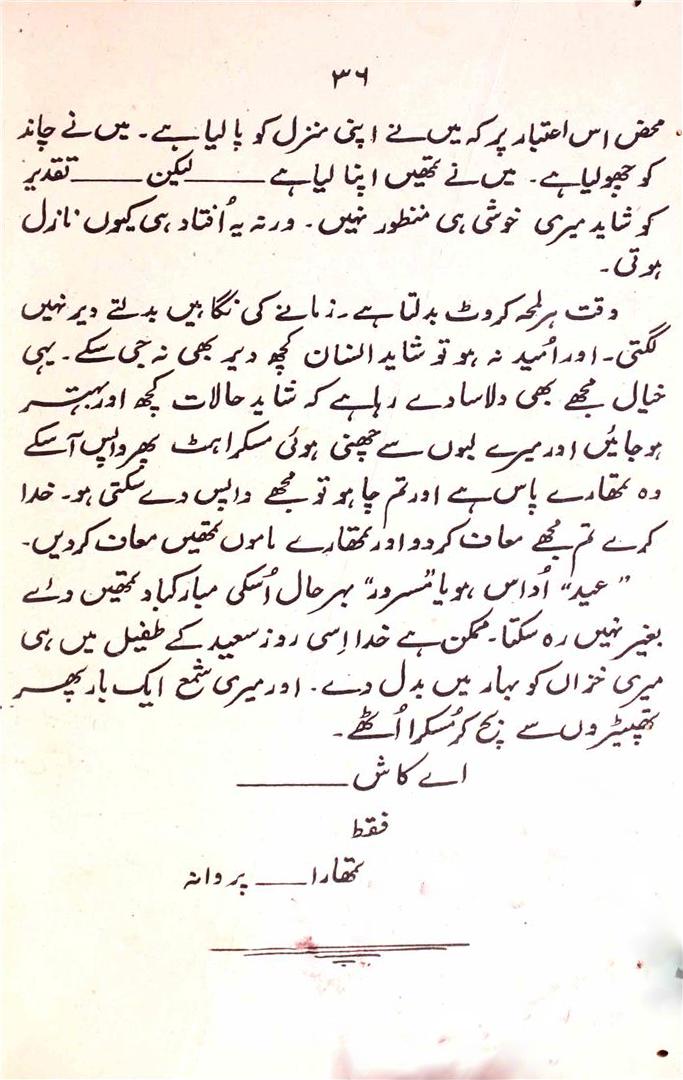 ۳۶
محض اس اعتبار پر کہ میں نے اپنی منزل کو پا لیا ہے۔ میں نے چاند
کو چھو لیا ہے۔ میں نے تمھیں اپنا لیا ہے ــــــ لیکن ــــــ تقدیر
کو شاید میری خوشی ہی منظور نہیں۔ ورنہ یہ اُفتاد ہی کیوں نازل
ہوتی۔
وقت ہر لمحہ کروٹ بدلتا ہے۔ زمانے کی نگاہیں بدلتے دیر نہیں
لگتی۔ اور اُمید نہ ہو تو شاید انسان کچھ دیر بھی نہ جی سکے۔ یہی
خیال مجھے بھی دلاسا دے رہا ہے کہ شاید حالات کچھ اور بہتر
ہو جائیں اور میرے لبوں سے چھنی ہوئی مسکراہٹ پھر واپس آ سکے
وہ تمھارے پاس ہے اور تم چاہو تو مجھے واپس دے سکتی ہو۔ خدا
کرے تم مجھے معاف کر دو اور تمھارے ماموں تمھیں معاف کر دیں۔
”عید“ اُداس ہو یا ”مسرور“ بہر حال اُسکی مبارکباد تمھیں دئے
بغیر نہیں رہ سکتا۔ ممکن ہے خدا اِسی روز سعید کے طفیل میں ہی
میری خزاں کو بہار میں بدل دے۔ اور میری شمع ایک بار پھر
تھپیڑوں سے بچ کر مُسکرا اُٹھے۔
اے کاش ــــــــــ
فقط
تمھارا ــــــ پروانہ